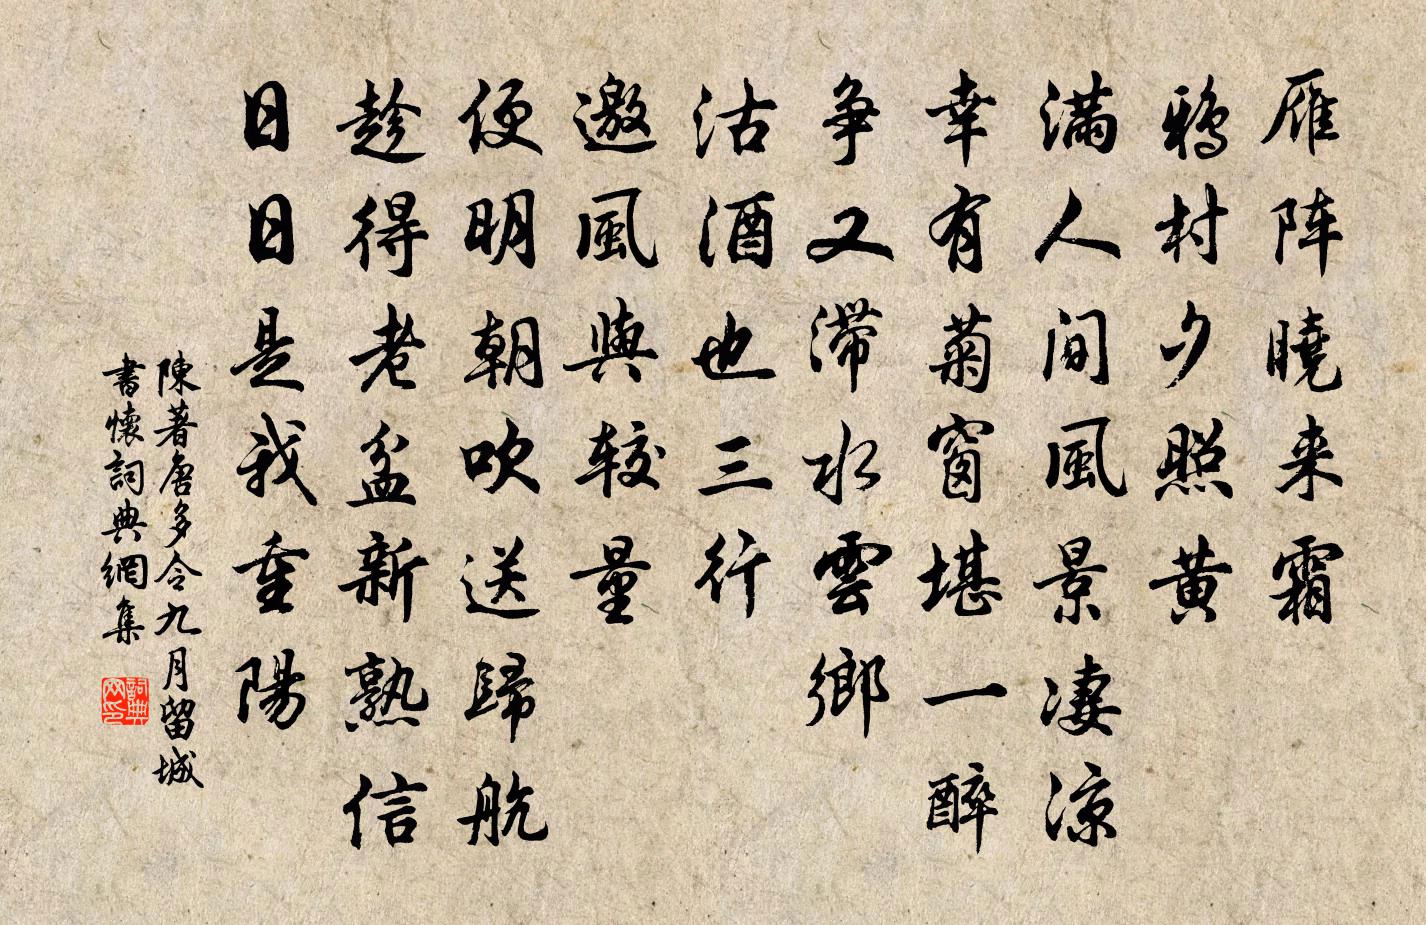 雁阵曉来霜
鴉村夕照黄
满人间風景凄凉
幸有菊窗堪一醉
争又滞水雲鄉
沽酒也三行
邀風與较量
便明朝吹送歸航
趁得老盆新熟信
日日是我重陽
陳著唐多令九月留城
書懷詞典網集
詞典
网印